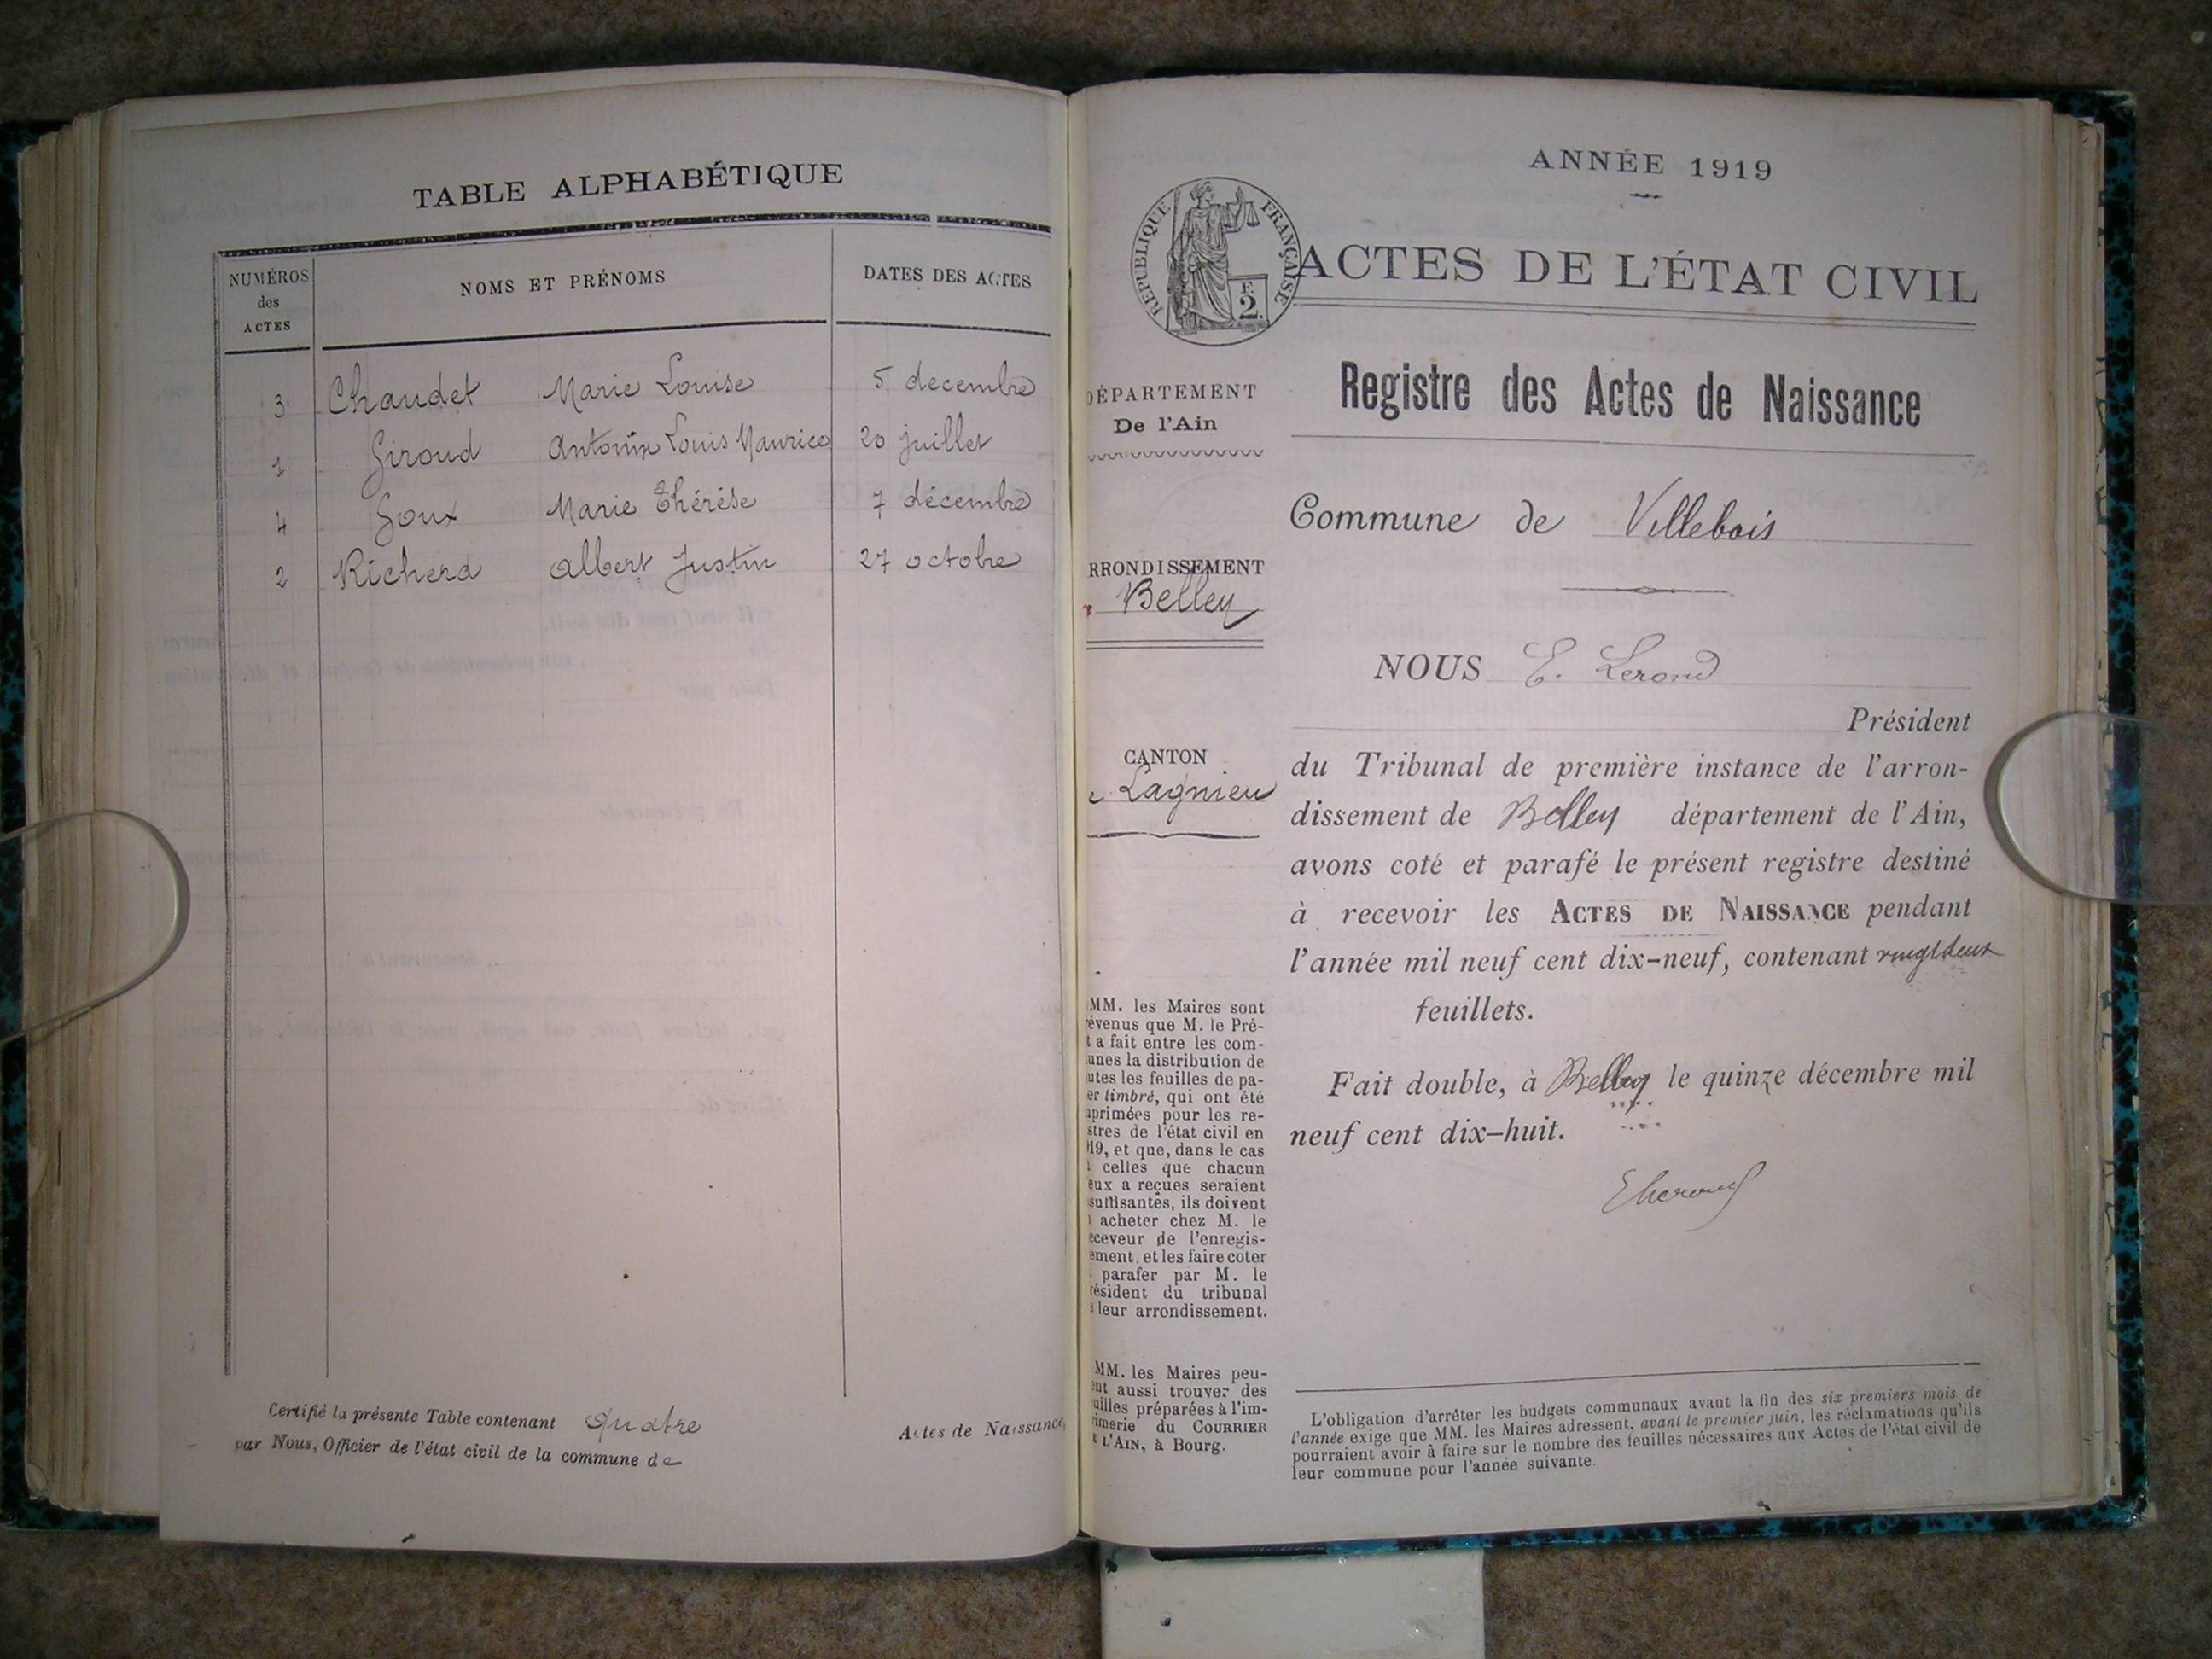 TABLE ALPHABÉTIQUE
NUMÉROS des ACTES
NOMS ET PRÉNOMS
DATES DES ACTES
3 Chaudet Marie Louise 5 decembre
1 Giroud Antonin Louis Maurice 20 juillet
4 Goux Marie Thérése 7 décembre
2 Richerd Albert Justin 27 octobre
Certifié la présente Table contenant Quatre Actes de Naissance,
par Nous, Officier de l'état civil de la commune de
ANNÉE 1919
RÉPUBLIQUE FRANÇAISE
F.
2.
ACTES DE L'ÉTAT CIVIL
Registre des Actes de Naissance
DÉPARTEMENT
De l'Ain
RRONDISSEMENT
Belley
CANTON
Lagnieu
MM. les Maires sont
révenus que M. le Pré-
t a fait entre les com-
unes la distribution de
utes les feuilles de pa-
er timbré, qui ont été
primées pour les re-
stres de l'état civil en
19, et que, dans le cas
celles que chacun
eux a reçues seraient
suffisantes, ils doivent
acheter chez M. le
eceveur de l'enregis-
ement, et les faire coter
parafer par M. le
résident du tribunal
leur arrondissement.
MM. les Maires peu-
ent aussi trouver des
uilles préparées à l'im-
rimerie du COURRIER
L'AIN, à Bourg.
Commune de Villebois
NOUS E. Lerond
Président
du Tribunal de première instance de l'arron-
dissement de Belley département de l'Ain,
avons coté et parafé le présent registre destiné
à recevoir les ACTES DE NAISSANCE pendant
l'année mil neuf cent dix-neuf, contenant vingt deux
feuillets.
Fait double, à Belley le quinze décembre mil
neuf cent dix-huit.
L'obligation d'arrêter les budgets communaux avant la fin des six premiers mois de
l'année exige que MM. les Maires adressent, avant le premier juin, les réclamations qu'ils
pourraient avoir à faire sur le nombre des feuilles nécessaires aux Actes de l'état civil de
leur commune pour l'année suivante.